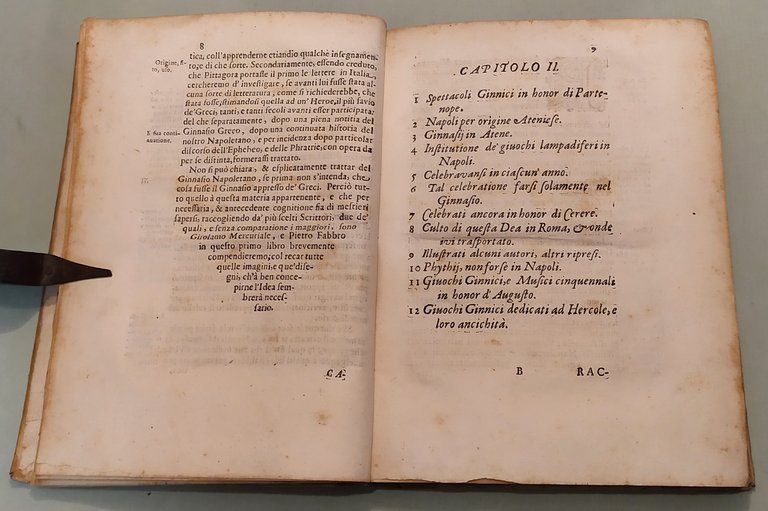 8
tica, coll'apprenderne etiandio qualche insegnamen-
Origine, si-
to, uso.
to, e di che sorte. Secondariamente, essendo creduto,
che Pittagora portasse il primo le lettere in Italia,
cercheremo d'investigare, se avanti lui fusse stata al-
cuna sorte di letteratura, come si richiederebbe, che
stata fosse, stimandosi quella ad un' Heroe, il più savio
de' Greci; tanti, e tanti secoli avanti esser participata;
del che separatamente, dopo una piena notitia del
E sua conti-
nuatione.
Ginnasio Greco, dopo una continuata historia del
nostro Napoletano, e per incidenza dopo particolar
discorso dell'Ephebeo, e delle Phratrie, con opera da
per se distinta, formerassi trattato.
Non si può chiara, & esplicatamente trattar del
17.
Ginnasio Napoletano, se prima non s'intenda, che
cosa fusse il Ginnasio appresso de' Greci. Perciò tut-
to quello à questa materia appartenente, e che per
necessaria, & antecedente cognitione fia di mestieri
sapersi, raccogliendo da' più scelti Scrittori, due de'
quali, e senza comparatione i maggiori, sono
Girolamo Mercuriale, e Pietro Fabbro
in questo primo libro brevemente
compendieremo; col recar tutte
quelle imagini, e que' dise-
gni, ch'à ben conce-
pirne l'Idea sem-
brerà neces-
sario.
CA-
9
CAPITOLO II.
1 Spettacoli Ginnici in honor di Parte-
nope.
2 Napoli per origine Ateniese.
3 Ginnasij in Atene.
4 Institutione de' giuochi lampadiferi in
Napoli.
5 Celebravansi in ciascun' anno.
6 Tal celebratione farsi solamente nel
Ginnasio.
7 Celebrati ancora in honor di Cerere.
8 Culto di questa Dea in Roma, & onde
ivi trasportato.
9 Illustrati alcuni autori, altri ripresi.
10 Phythij, non forse in Napoli.
11 Giuochi Ginnici, e Musici cinquennali
in honor d'Augusto.
12 Giuochi Ginnici dedicati ad Hercole, e
loro ancichità.
B RAC-